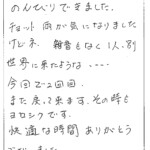 のんびりできました。
チョット 雨が気になりました
けどネ。 雑音もなく1人、別
世界に来たような....
今回で2回目。
また戻って来ます。その時も
ヨロシクです。
快適な時間 ありがとう